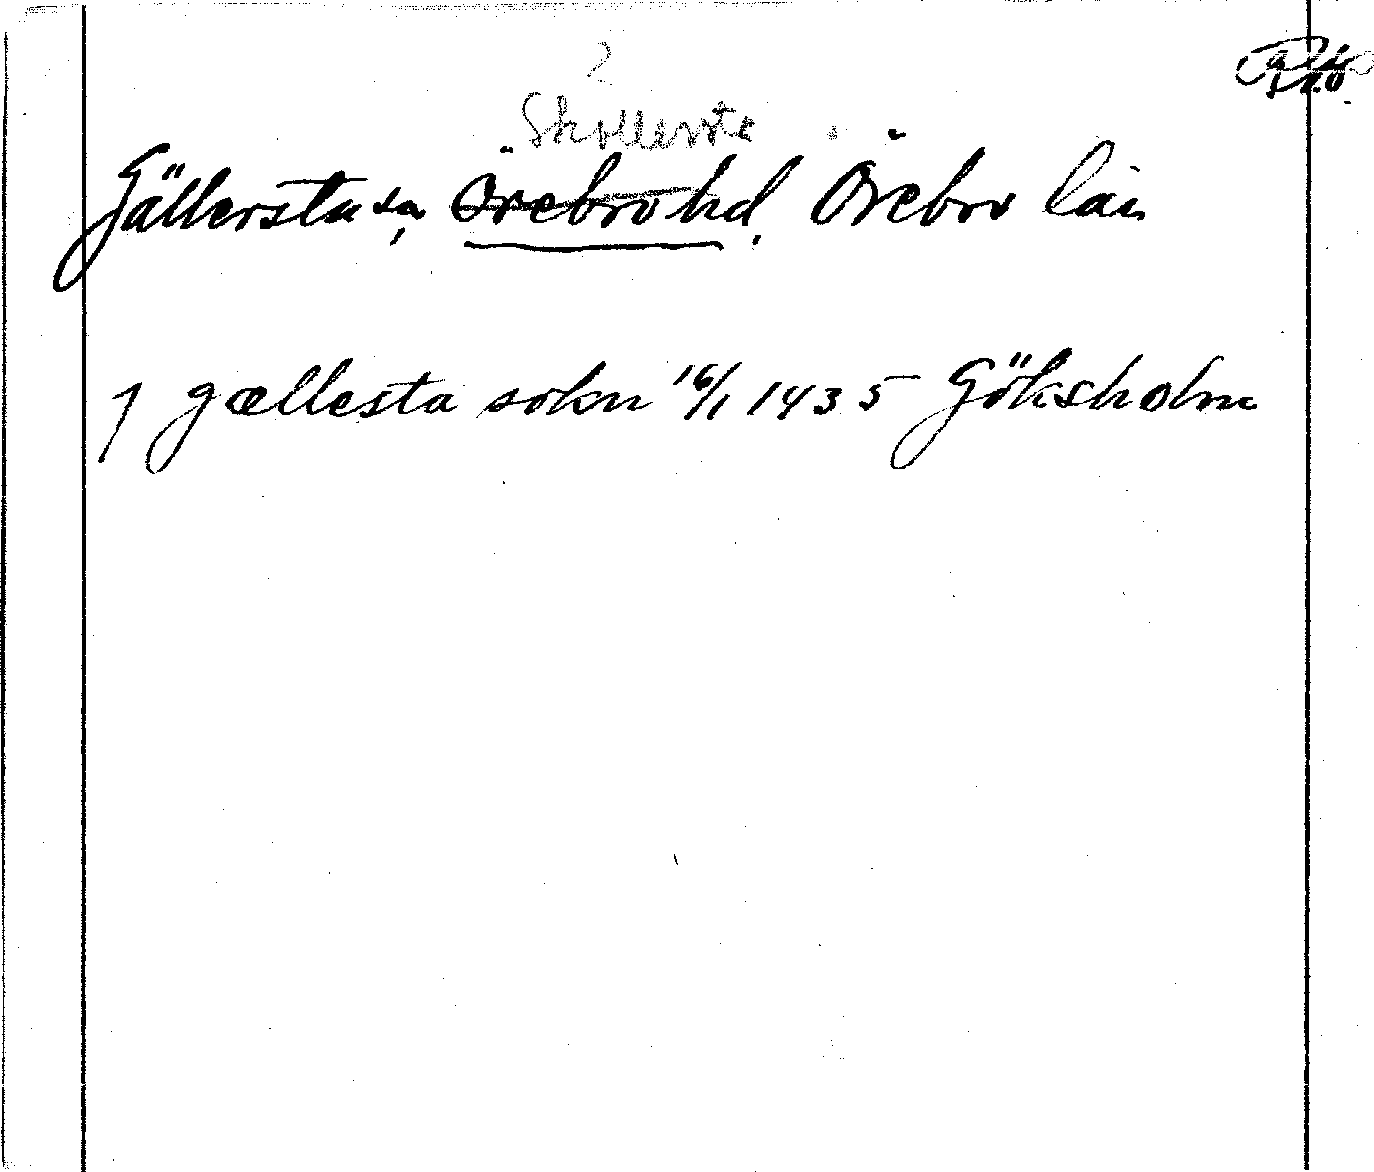 2
Skollersta
Gällersta sn, Örebro hd, Örebro län
J gællesta sokn 16/1 1435 Göksholm